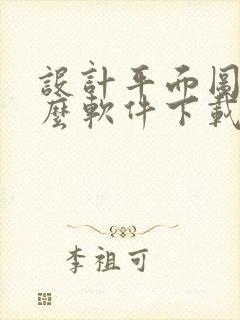 設計平面圖
麼軟件下載
李祖可